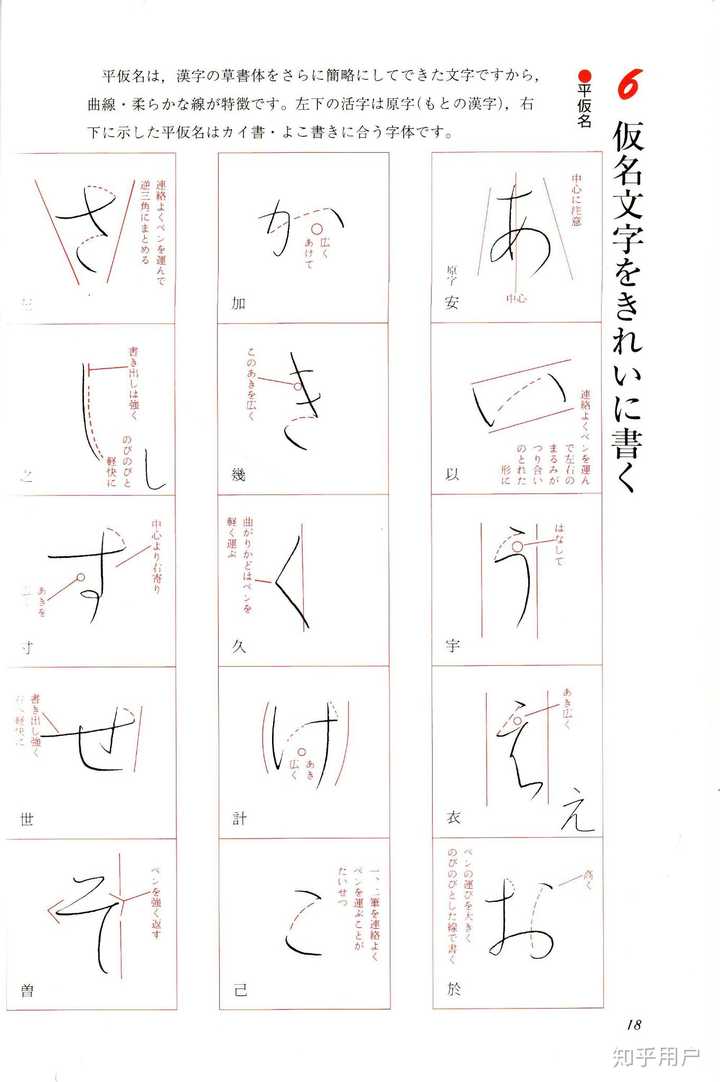 6 仮名文字をきれいに書く
●平仮名
平仮名は，漢字の草書体をさらに簡略にしてできた文字ですから，
曲線・柔らかな線が特徴です。左下の活字は原字(もとの漢字)，右
下に示した平仮名はカイ書・よこ書きに合う字体です。
あ
中心に注意
中心
原字
安
い
連絡よくペンを運ん
で左右の
まるみが
つり合い
のとれた
形に
以
う
はなして
宇
え
あき広く
え
衣
お
高く
ペンの運びを大きく
のびのびとした線で書く
於
か
広く
あけて
加
き
このあきを広く
幾
く
曲がりかどはペンを
軽く運ぶ
久
け
あき
広く
計
こ
一、二筆を連絡よく
ペンを運ぶことが
たいせつ
己
さ
連絡よくペンを運んで
逆三角にまとめる
し
書き出しは強く
のびのびと
軽快に
し
之
す
中心より右寄り
あきを
寸
せ
書き出し強く
世
そ
ペンを強く返す
曽
18
知乎用户